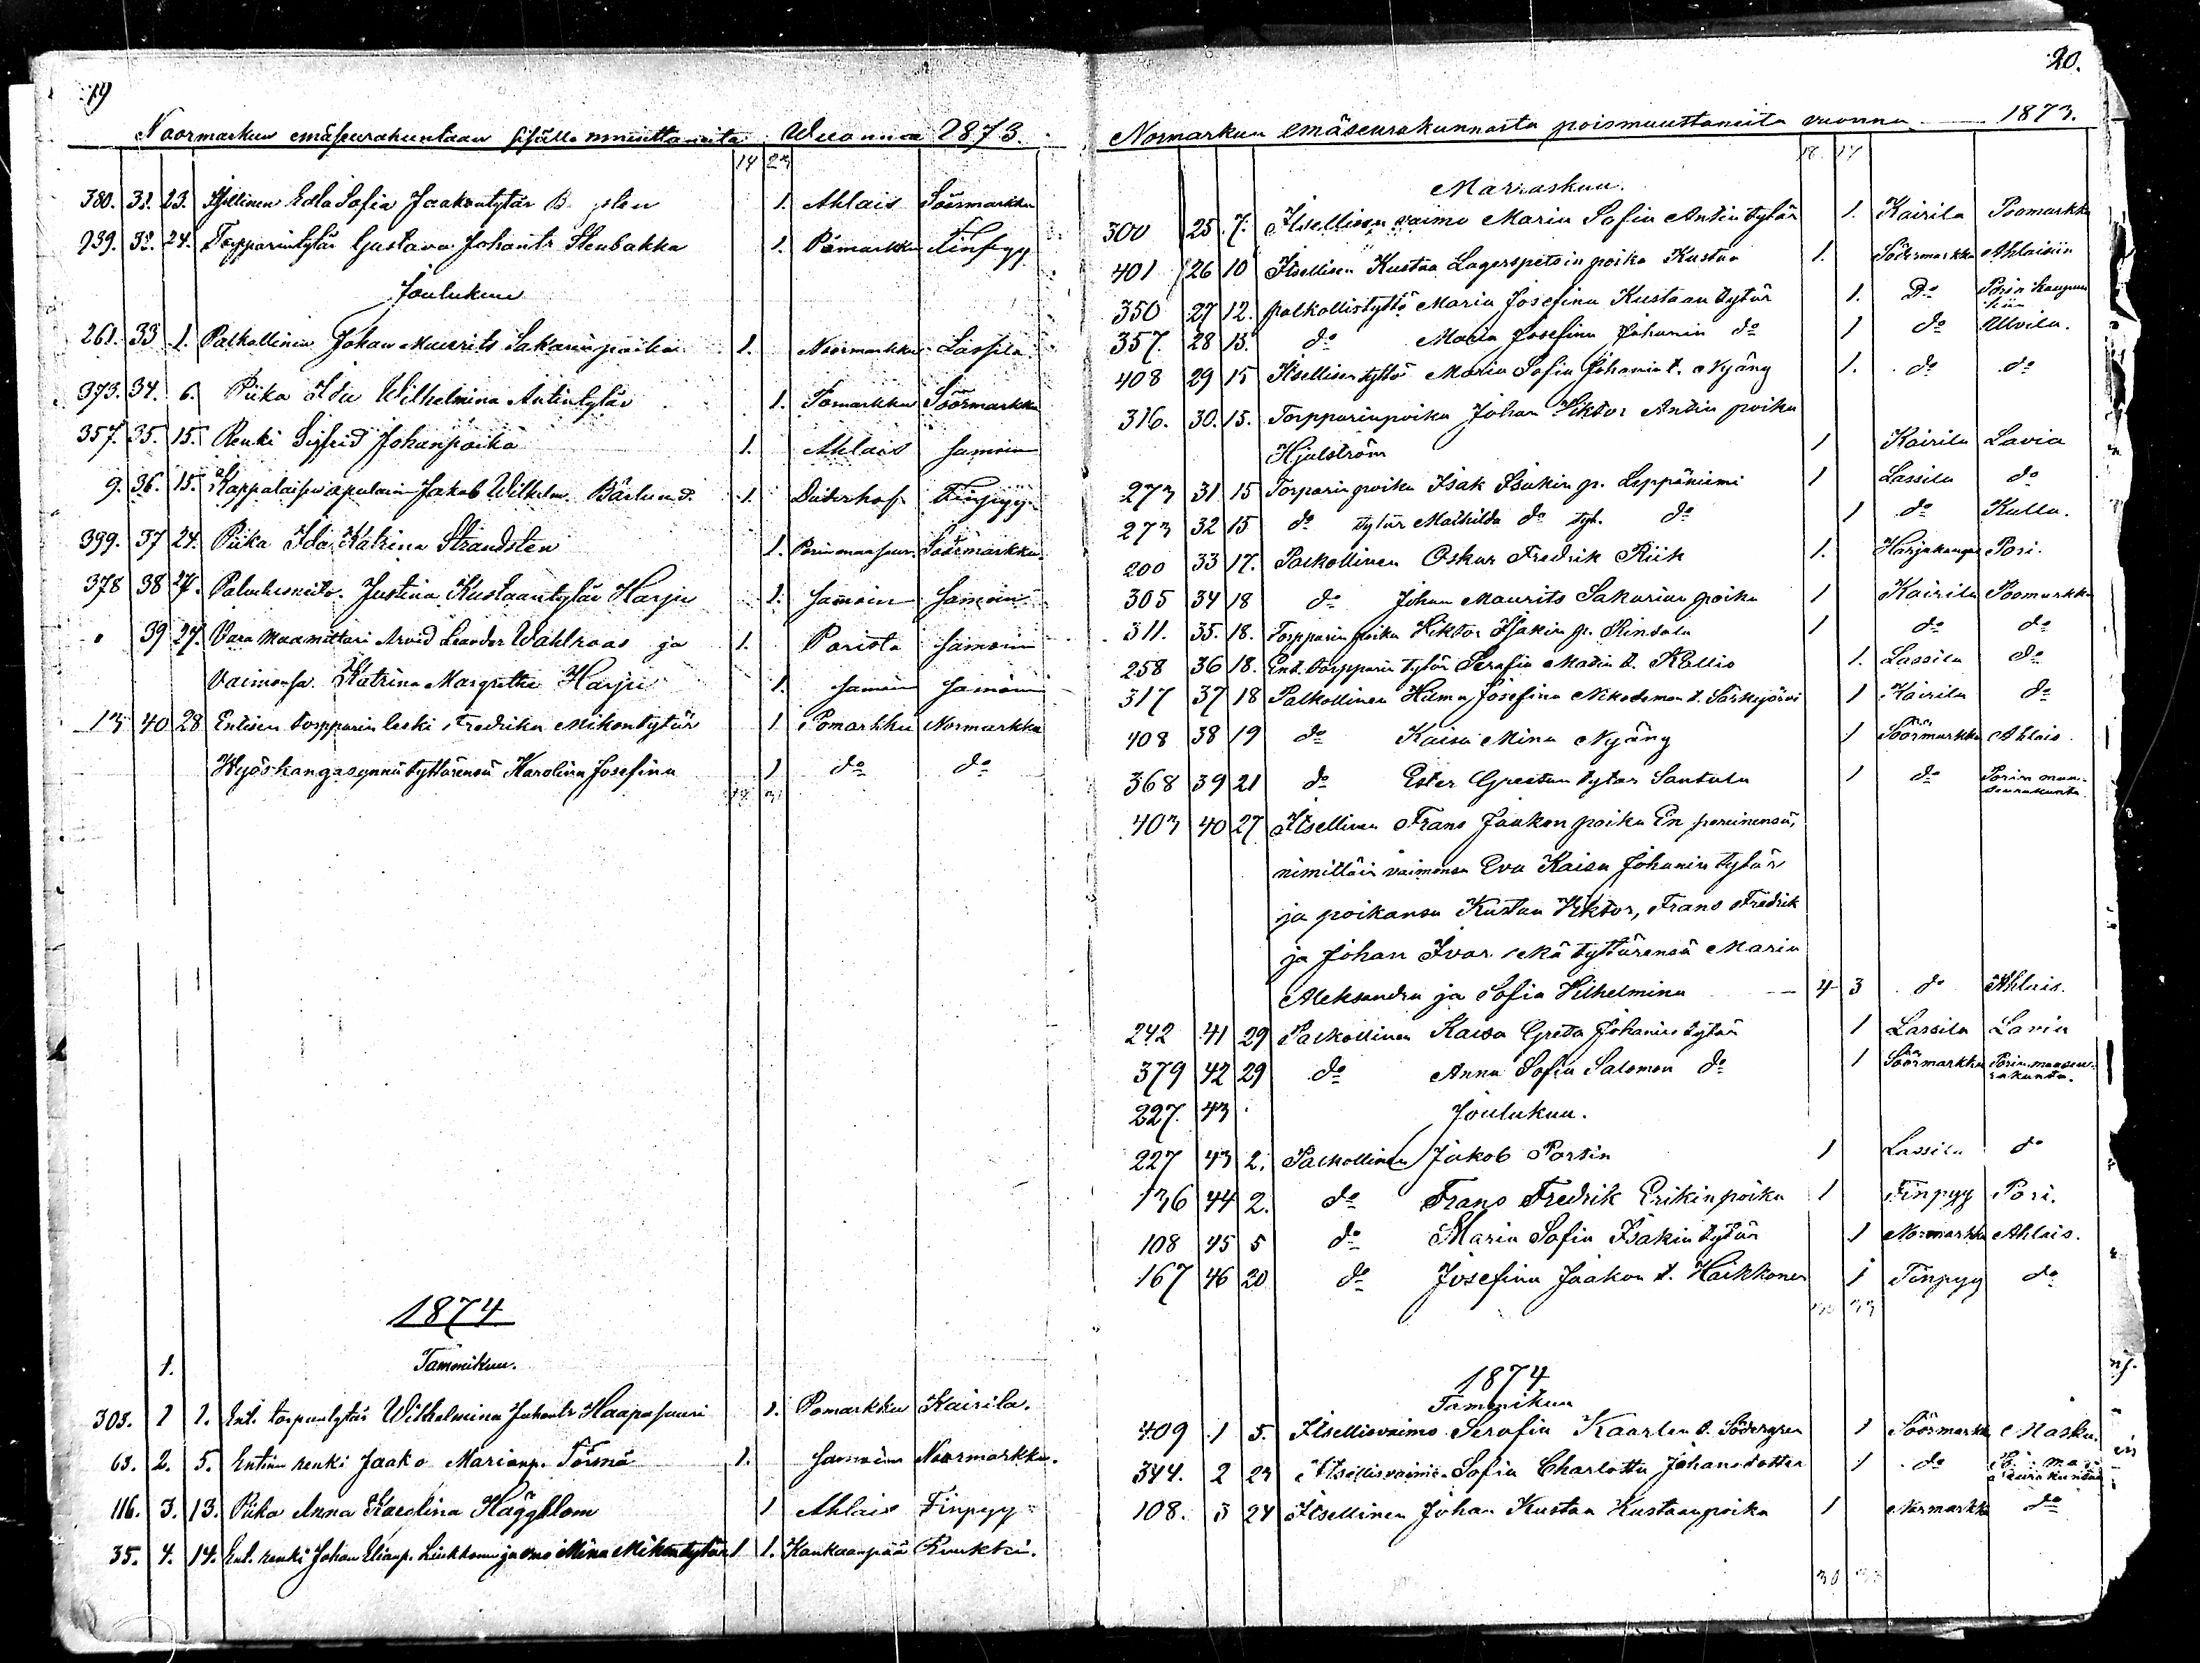 19
Noormarkun emäseurakuntaan sisälle muuttaneita Wuonna 1873.
14 23
380. 31. 23. Itsellinen Edla Sofia Jaakontytär 1. Ahlais Söörmarkku
939. 32. 24. Torpparintytär Gustava Johantr Stenbakka 1. Pomarkku Finpyy
Joulukuu
261. 33 1. Palkollinen Johan Maurits Sakarinpoika 1. Noormarkku Lassila
373. 34. 6. Piika Ida Wilhelmina Antintytär 1. Pomarkku Söörmarkku
357. 35. 15. Renki Sigfrid Johanpoika 1. Ahlais samoin
9. 36. 15. Kappalaisen apulain Jakob Wilhelm Bärlund. 1. Finpyy
399. 37 24. Piika Ida Katrina Strandsten 1. Porin maaseur. Söörmarkku
378 38 27. Palvelusneito Justina Kustaantytär Harju 1. samoin samoin
" 39 27. Vara Maamittari Arvid Leander Wahlroos ja 1. Porista samoin
Vaimonsa Katrina Margretha Harju 1. samoin samoin
13 40 28 Entisen torpparin leski Fredrika Mikontytär 1 Pomarkku Normarkku
Hyöskangas ynnä tyttärensä Karolina Josefina 1 do do
18 31
1874
1. Tammikuu.
303. 1 1. Ent. torparintytär Wilhelmina Juhantr Haapasuuri 1. Pomarkku Kairila.
63. 2. 5. Entinen renki Jaako Marianp. Törmä 1. samoin Noormarkku.
116. 3. 13. Piika Anna Karolina Häggblom 1 Ahlais Finpyy
35. 4. 14. Ent. renki Johan Elianp. Linkkonen ja vmo Mina Mikontytär 1 1. Kankaanpää Ruukki.
20.
Normarkun emäseurakunnasta poismuuttaneita vuonna 1873.
18. 17
Marraskuu.
300 25 7. Itsellisen vaimo Maria Sofia Antin tytär 1. Kairila Poomarkku
401 26 10 Itsellisen Kustaa Lagerspetsin poika Kustaa 1. Södermarkku Ahlaisiin
350 27 12. palkollistyttö Maria Josefina Kustaan tytär 1. Do Porin kaupunkiin
357. 28 13. do Maria Josefina Johanin do 1 do Ulvila.
408 29 15 Itsellisen tyttö Maria Sofia Johanin t. Nyäng 1. do do
316. 30. 15. Torpparinpoika Johan Viktor Antin poika
Hjulström 1 Kairila Lavia
273 31 15 Torparin poika Isak Isakin p. Leppäniemi 1 Lassila do
273 32 15 do tytär Mathilda do tyt. do 1 do Kulla.
200 33 17. Palkollinen Oskar Fredrik Riik 1. Harjakangas Pori.
305 34 18 do Johan Maurits Sakarian poika 1 Kairila Poomarkku
311. 35. 18. Torpparin poika Viktor Isakin p. Rindala 1 do do
258 36 18. Ent. torpparin tytär Serafia Matin t. Kallio 1. Lassila do
317 37 18 Palkollinen Hilma Josefina Nikodemon t. Särkijärvi 1 Kairila do
408 38 19 do Kaisa Mina Nyäng 1 Söörmarkku Ahlais.
368 39 21 do Ester Greetan tytar Santala 1 do Porin maaseurakunta.
403 40 27 Itsellinen Frans Jaakon poika En pereinensä,
nimittäin vaimonsa Eva Kaisa Johanin tytär
ja poikansa Kustaa Viktor, Frans Fredrik
ja Johan Ivar sekä tyttärensä Maria
Aleksandra ja Sofia Vilhelmina 4 3 do Ahlais.
242 41 29 Palkollinen Kaisa Greta Johanin tytär 1 Lassila Lavia
379 42 29 do Anna Sofia Salomon do 1 Söörmarkku Porin maaseurakunta.
227. 43 Joulukuu.
227 43 2. Palkollinen Jakob Portin 1 Lassila do
136 44 2. do Frans Fredrik Erikinpoika 1 Finpyy Pori.
108 45 5 do Maria Sofia Isakin tytär 1 Normarkku Ahlais.
167 46 20 do Josefina Jaakon t. Haikkonen 1 Finpyy do
30 33
1874
Tammikuu
409 1 5. Itsellisvaimo Serafia Kaarlen t. Södergren 1 Söörmarkku Masku.
344. 2 23 Itsellisvaimo Sofia Charlotta Johansdotter 1 do
108. 3 24 Itsellinen Johan Kustaa Kustaanpoika 1 Normarkku do
30 33